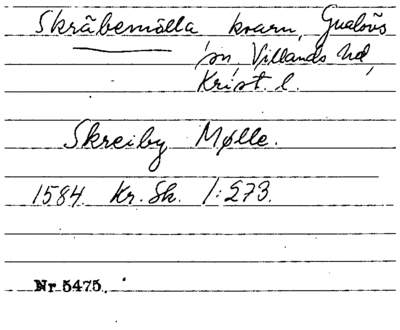 Skräbemölla kvarn, Gualövs
sn, Villands hd,
Krist. l.
Skreiby Mølle.
1584 Kr. Sk. 1:273.
Nr 5475.